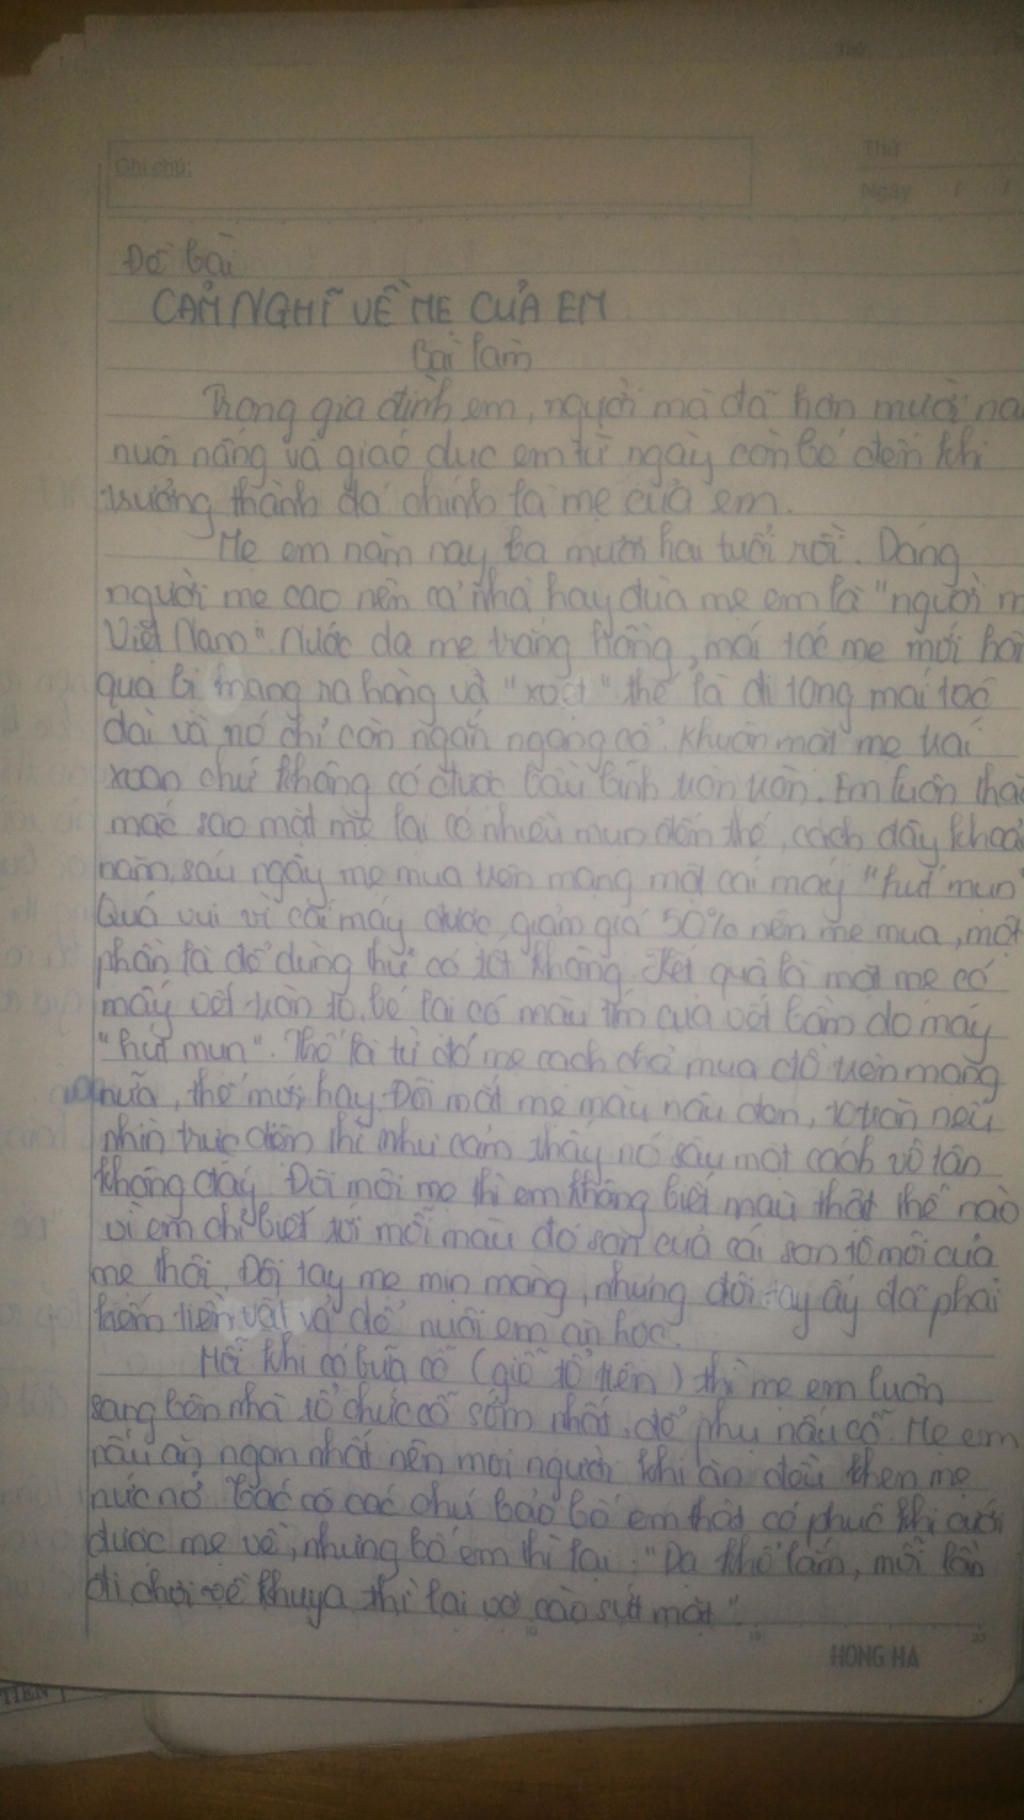 Thứ
Ghi chú:
Ngày / /
Đề bài
CẢM NGHĨ VỀ MẸ CỦA EM
Bài làm
Trong gia đình em, người mà đã hơn mười
nuôi nấng và giáo dục em từ ngày còn bé đến khi
trưởng thành đó chính là mẹ của em.
Mẹ em năm nay ba mươi hai tuổi rồi. Dáng
người mẹ cao nên cả nhà hay đùa mẹ em là "người
Việt Nam". Nước da mẹ trắng hồng, mái tóc mẹ mới hôm
qua bị mang ra hàng và "xoẹt" thế là đi tong mái tóc
dài và nó chỉ còn ngắn ngang cổ. Khuôn mặt mẹ trái
xoan chứ không có được bầu bĩnh tròn tròn. Em luôn
mắc sao mặt mẹ lại có nhiều mụn đến thế, cách đây
năm, sáu ngày mẹ mua trên mạng một cái máy "hút mụn"
Quá vui vì cái máy được giảm giá 50% nên mẹ mua, một
phần là để dùng thử có tốt không. Kết quả là mặt mẹ có
mấy vết tròn to, bé lại có màu tím của vết bầm do máy
"hút mụn". Thế là từ đó mẹ cạch chả mua đồ trên mạng
nữa, thế mới hay. Đôi mắt mẹ màu nâu đen, to tròn nếu
nhìn trực diện thì như cảm thấy nó sâu một cách vô tận
không đáy. Đôi môi mẹ thì em không biết màu thật thế nào
vì em chỉ biết tới mỗi màu đỏ sẫn của cái son tô môi của
mẹ thôi. Đôi tay mẹ mịn màng, nhưng đôi tay ấy đã phải
kiếm tiền vất vả để nuôi em ăn học.
Mỗi khi có bữa cỗ (giỗ tổ tiên) thì mẹ em luôn
sang bên nhà tổ chức cỗ sớm nhất, để phụ nấu cỗ. Mẹ em
nấu ăn ngon nhất nên mọi người khi ăn đều khen mẹ
nức nở. Các cô các chú bảo bố em thật có phúc khi cưới
được mẹ về, nhưng bố em thì lại: "Dạ khổ lắm, mỗi lần
đi chơi về khuya thì lại vợ cào sứt mặt".
HONG HA
TIEN